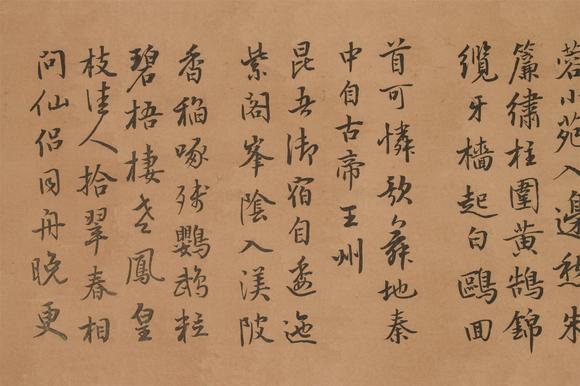 蓉小苑入邊愁朱
簾繡柱圍黃鵠錦
纜牙檣起白鷗回
首可憐歌舞地秦
中自古帝王州
昆吾御宿自逶迤
紫閣峯陰入渼陂
香稻啄殘鸚鵡粒
碧梧棲老鳳皇
枝佳人拾翠春相
問仙侶同舟晚更